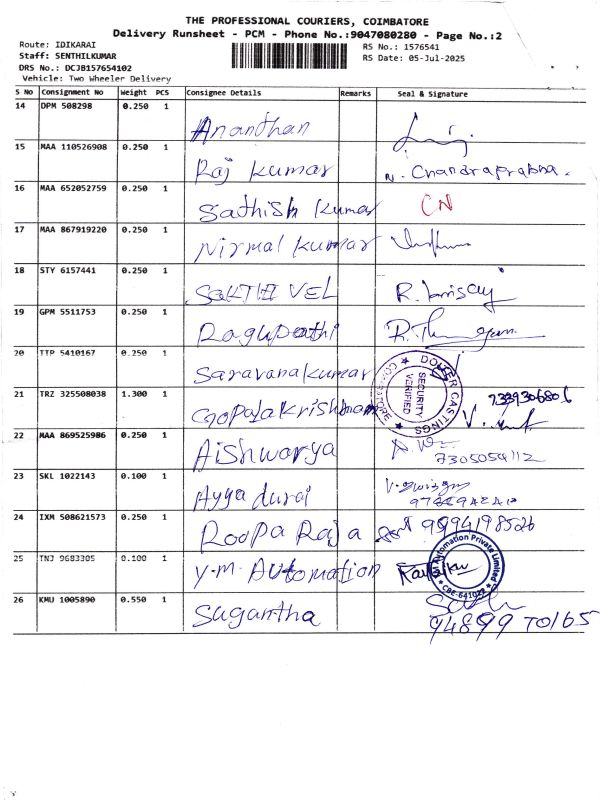 THE PROFESSIONAL COURIERS, COIMBATORE
Delivery Runsheet - PCM - Phone No.:9047080280 - Page No.:2
Route: IDIKARAI
RS No.: 1576541
Staff: SENTHILKUMAR
RS Date: 05-Jul-2025
DRS No.: DCJB157654102
Vehicle: Two Wheeler Delivery
S No Consignment No Weight PCS Consignee Details Remarks Seal & Signature
14 DPM 508298 0.250 1 Ananthan
15 MAA 110526908 0.250 1 Raj Kumar N. Chandraprabha.
16 MAA 652052759 0.250 1 Sathish Kumar CN
17 MAA 867919220 0.250 1 Nirmal Kumar
18 STY 6157441 0.250 1 SAKTHI VEL
19 GPM 5511753 0.250 1 Ragupathi
20 TTP 5410167 0.250 1 Saravanakumar
DOLLER CASTINGS COIMBATORE
SECURITY VERIFIED
21 TRZ 325508038 1.300 1 Gopalakrishnan
22 MAA 869525986 0.250 1 Aishwarya 7305054112
23 SKL 1022143 0.100 1 Ayyadurai
24 IXM 508621573 0.250 1 Roopa Raja 9894198526
25 TNJ 9683305 0.100 1 Y.M. Automation Karthiku
Automation Private Limited
CBE-641022
26 KMU 1005890 0.550 1 Sugantha
94899 70165